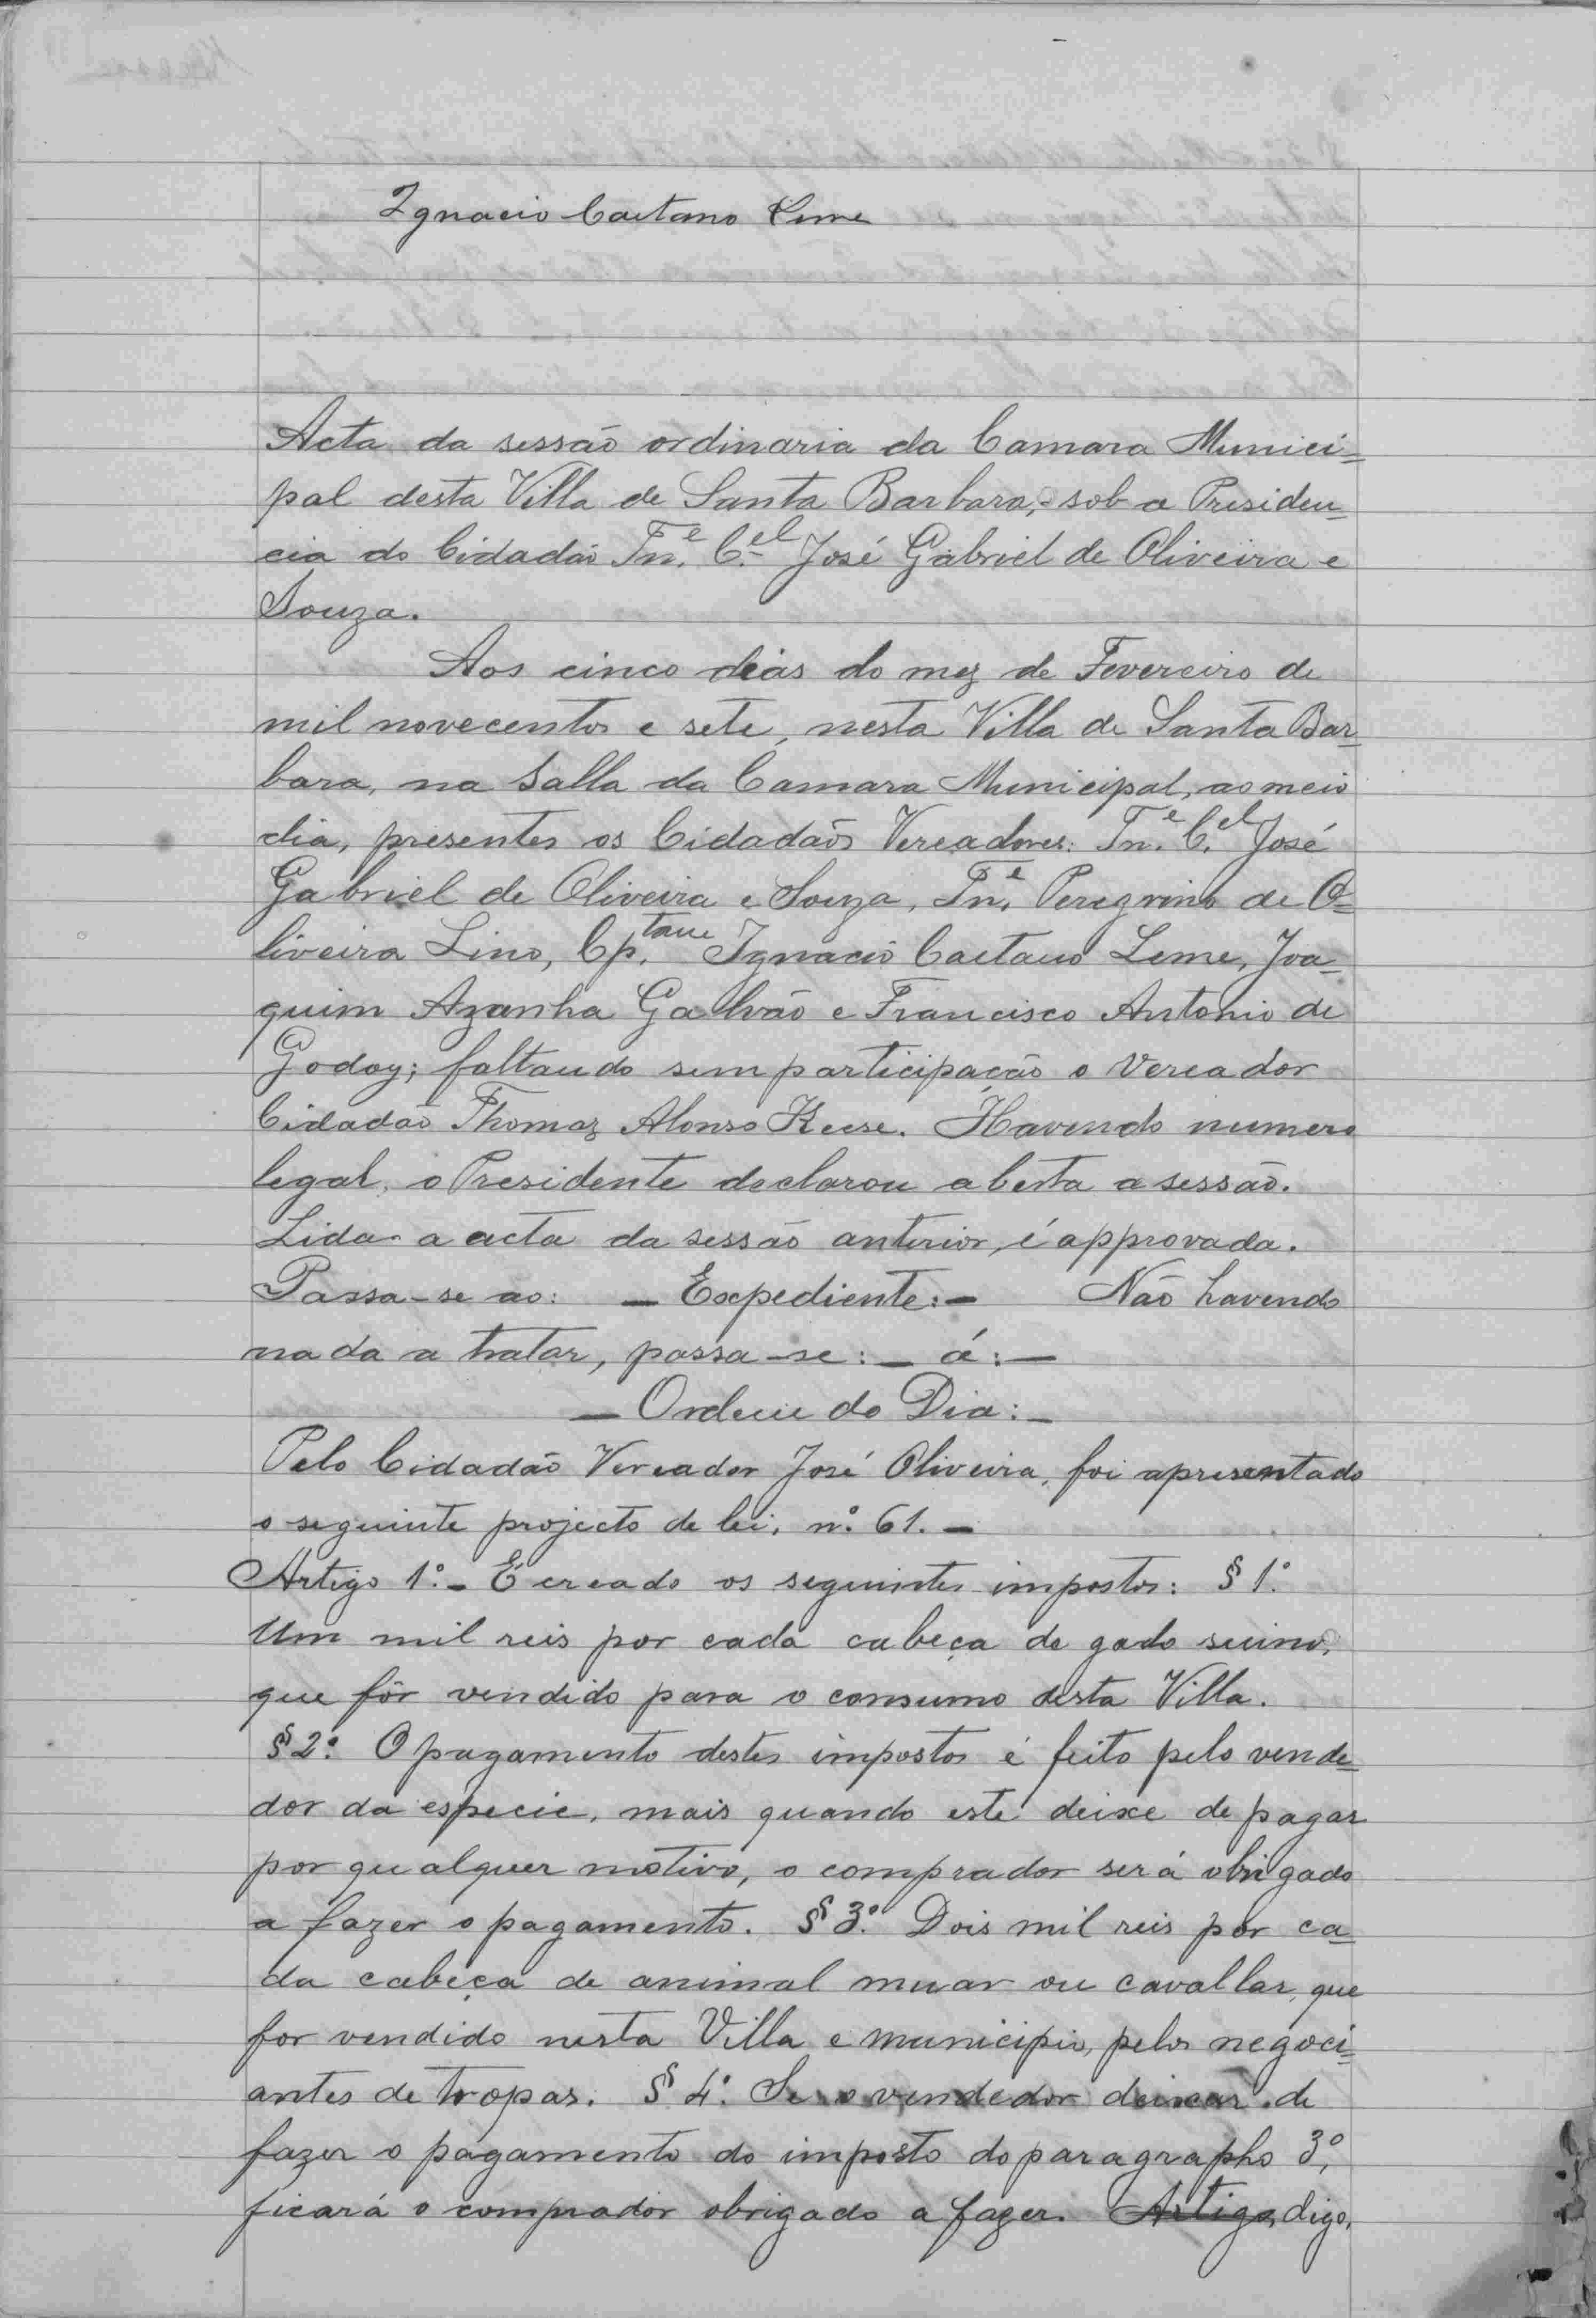 Ignacio Caetano Leme
Acta da sessão ordinaria da Camara Munici=
pal desta Villa de Santa Barbara, sob a Presiden=
cia do Cidadão Tn.e C.el José Gabriel de Oliveira e
Souza.
Aos cinco dias do mez de Fevereiro de
mil novecentos e sete, nesta Villa de Santa Bar=
bara, na Salla da Camara Municipal, ao meio
dia, presentes os Cidadãos Vereadores: Tn.e C.el José
Gabriel de Oliveira e Souza, Tn.e Peregrino de O=
liveira Lino, Cp.tam Ignacio Caetano Leme, Joa=
quim Azanha Galvão e Francisco Antonio de
Godoy; faltando sem participação o Vereador
Cidadão Thomaz Alonso Keese. Havendo numero
legal, o Presidente declarou aberta a sessão.
Lida a acta da sessão anterior, é approvada.
Passa-se ao: — Expediente:— Não havendo
nada a tratar, passa-se:— á:—
— Ordem do Dia:—
Pelo Cidadão Vereador José Oliveira, foi apresentado
o seguinte projecto de lei, n.º 61.—
Artigo 1.º— É creado os seguintes impostos: § 1.º
Um mil reis por cada cabeça de gado suino,
que fôr vendido para o consumo desta Villa.
§ 2.º O pagamento destes impostos é feito pelo vende=
dor da especie, mais quando este deixe de pagar
por qualquer motivo, o comprador será obrigado
a fazer o pagamento. § 3.º Dois mil reis por ca=
da cabeça de animal muar ou cavallar, que
for vendido nesta Villa e municipio, pelos negoci=
antes de tropas. § 4.º Se o vendedor deixar de
fazer o pagamento do imposto do paragrapho 3.º,
ficará o comprador obrigado a fazer. Artigo, digo,